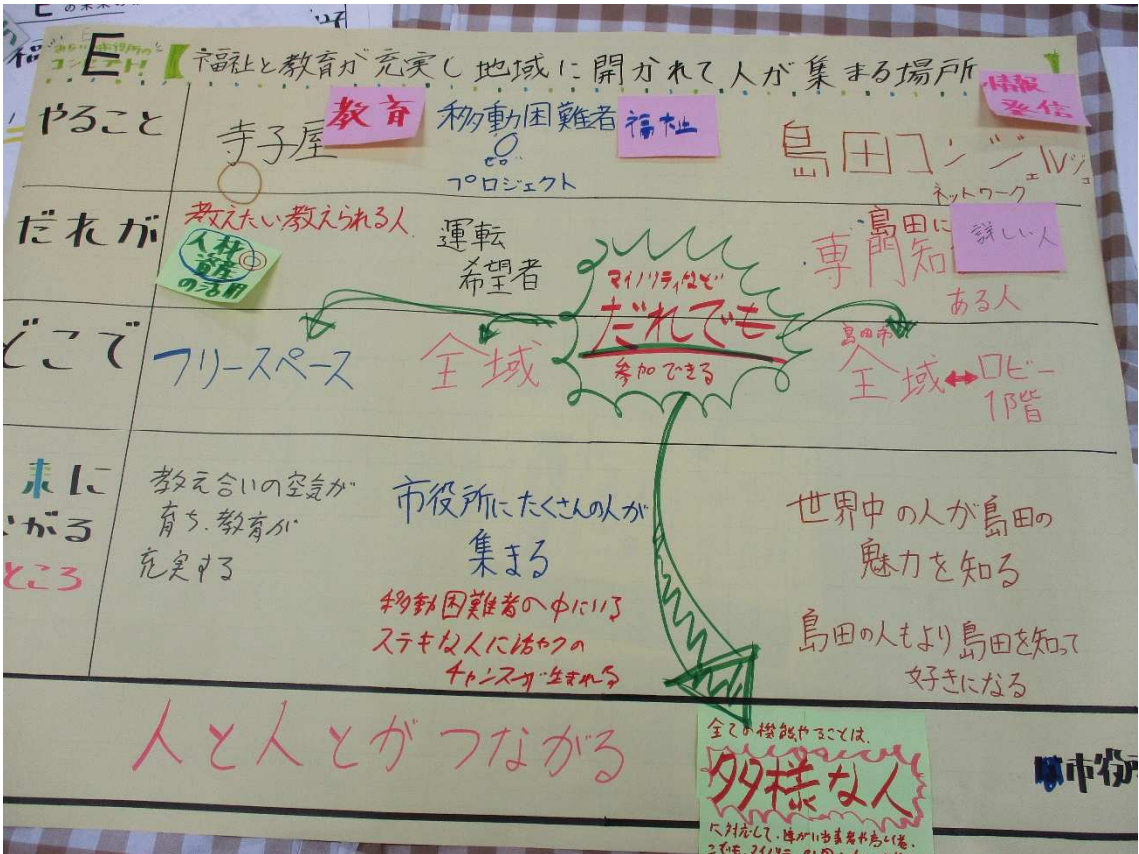 E
みんなの市役所の
コンセプト!
福祉と教育が充実し地域に開かれて人が集まる場所
情報
発信
やること
寺子屋
教育
移動困難者
ゼロ
0
プロジェクト
福祉
島田コンシェルジュ
ネットワーク
だれが
教えたい教えられる人
人材
資産
の活用
運転
希望者
島田に
詳しい人
専門知
ある人
マイノリティなど
だれでも
参加できる
どこで
フリースペース
全域
島田市
全域↔ロビー
1階
来に
がる
ところ
教え合いの空気が
育ち、教育が
充実する
市役所にたくさんの人が
集まる
移動困難者の中にいる
ステキな人に活やくの
チャンスが生まれる
世界中の人が島田の
魅力を知る
島田の人もより島田を知って
好きになる
人と人とがつながる
全ての機能やることは、
多様な人
に対応して、障がい当事者や高れい者、
市役所